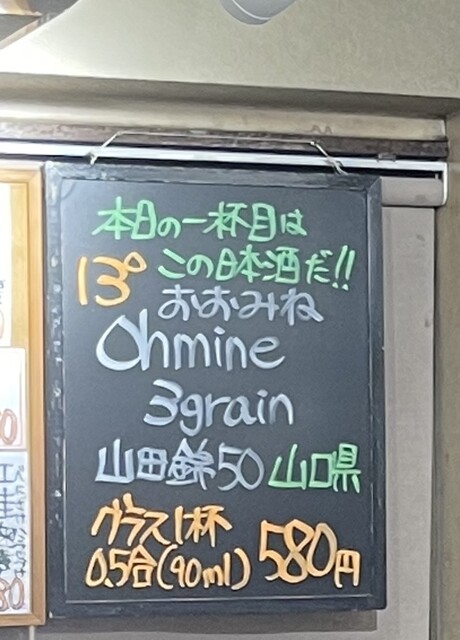 本日の一杯目は
この日本酒だ!!
13°
おおみね
Ohmine
3grain
山田錦50 山口県
グラス1杯
0.5合(90ml) 580円